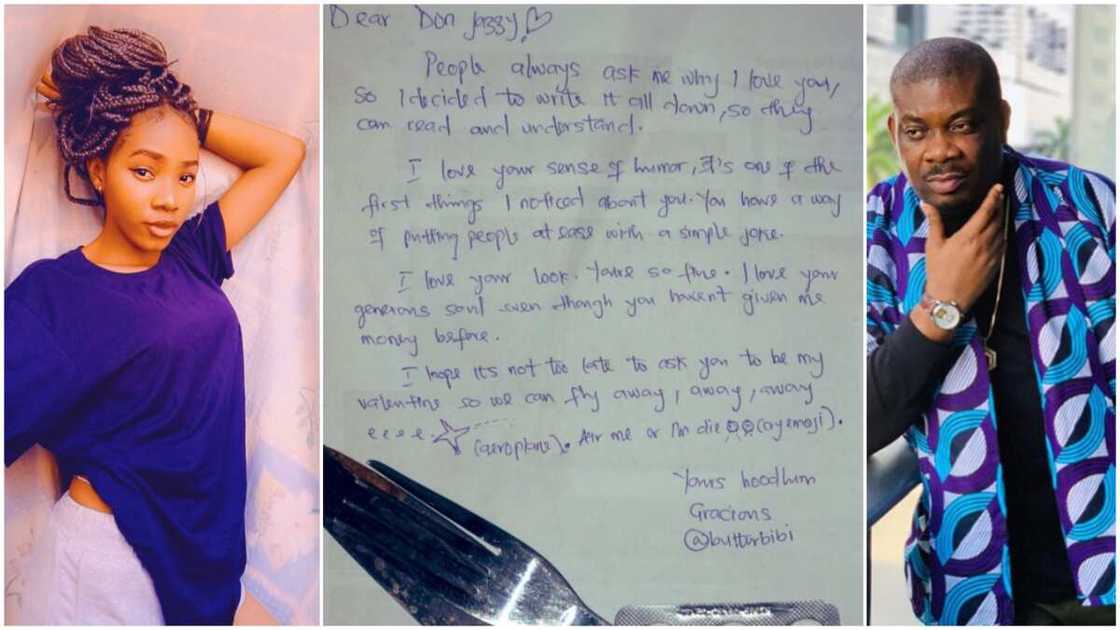 Dear Don Jazzy!
People always ask me why I love you,
so I decided to write it all down, so they
can read and understand.
I love your sense of humor, It's one of the
first things I noticed about you. You have a way
of putting people at ease with a simple joke.
I love your look. You're so fine. I love your
generous soul even though you haven't given me
money before.
I hope it's not too late to ask you to be my
valentine so we can fly away, away, away
eeee
(aeroplane). Air me or I'm die (cry emoji).
Yours hoodlum
Gracious
@butterbibi